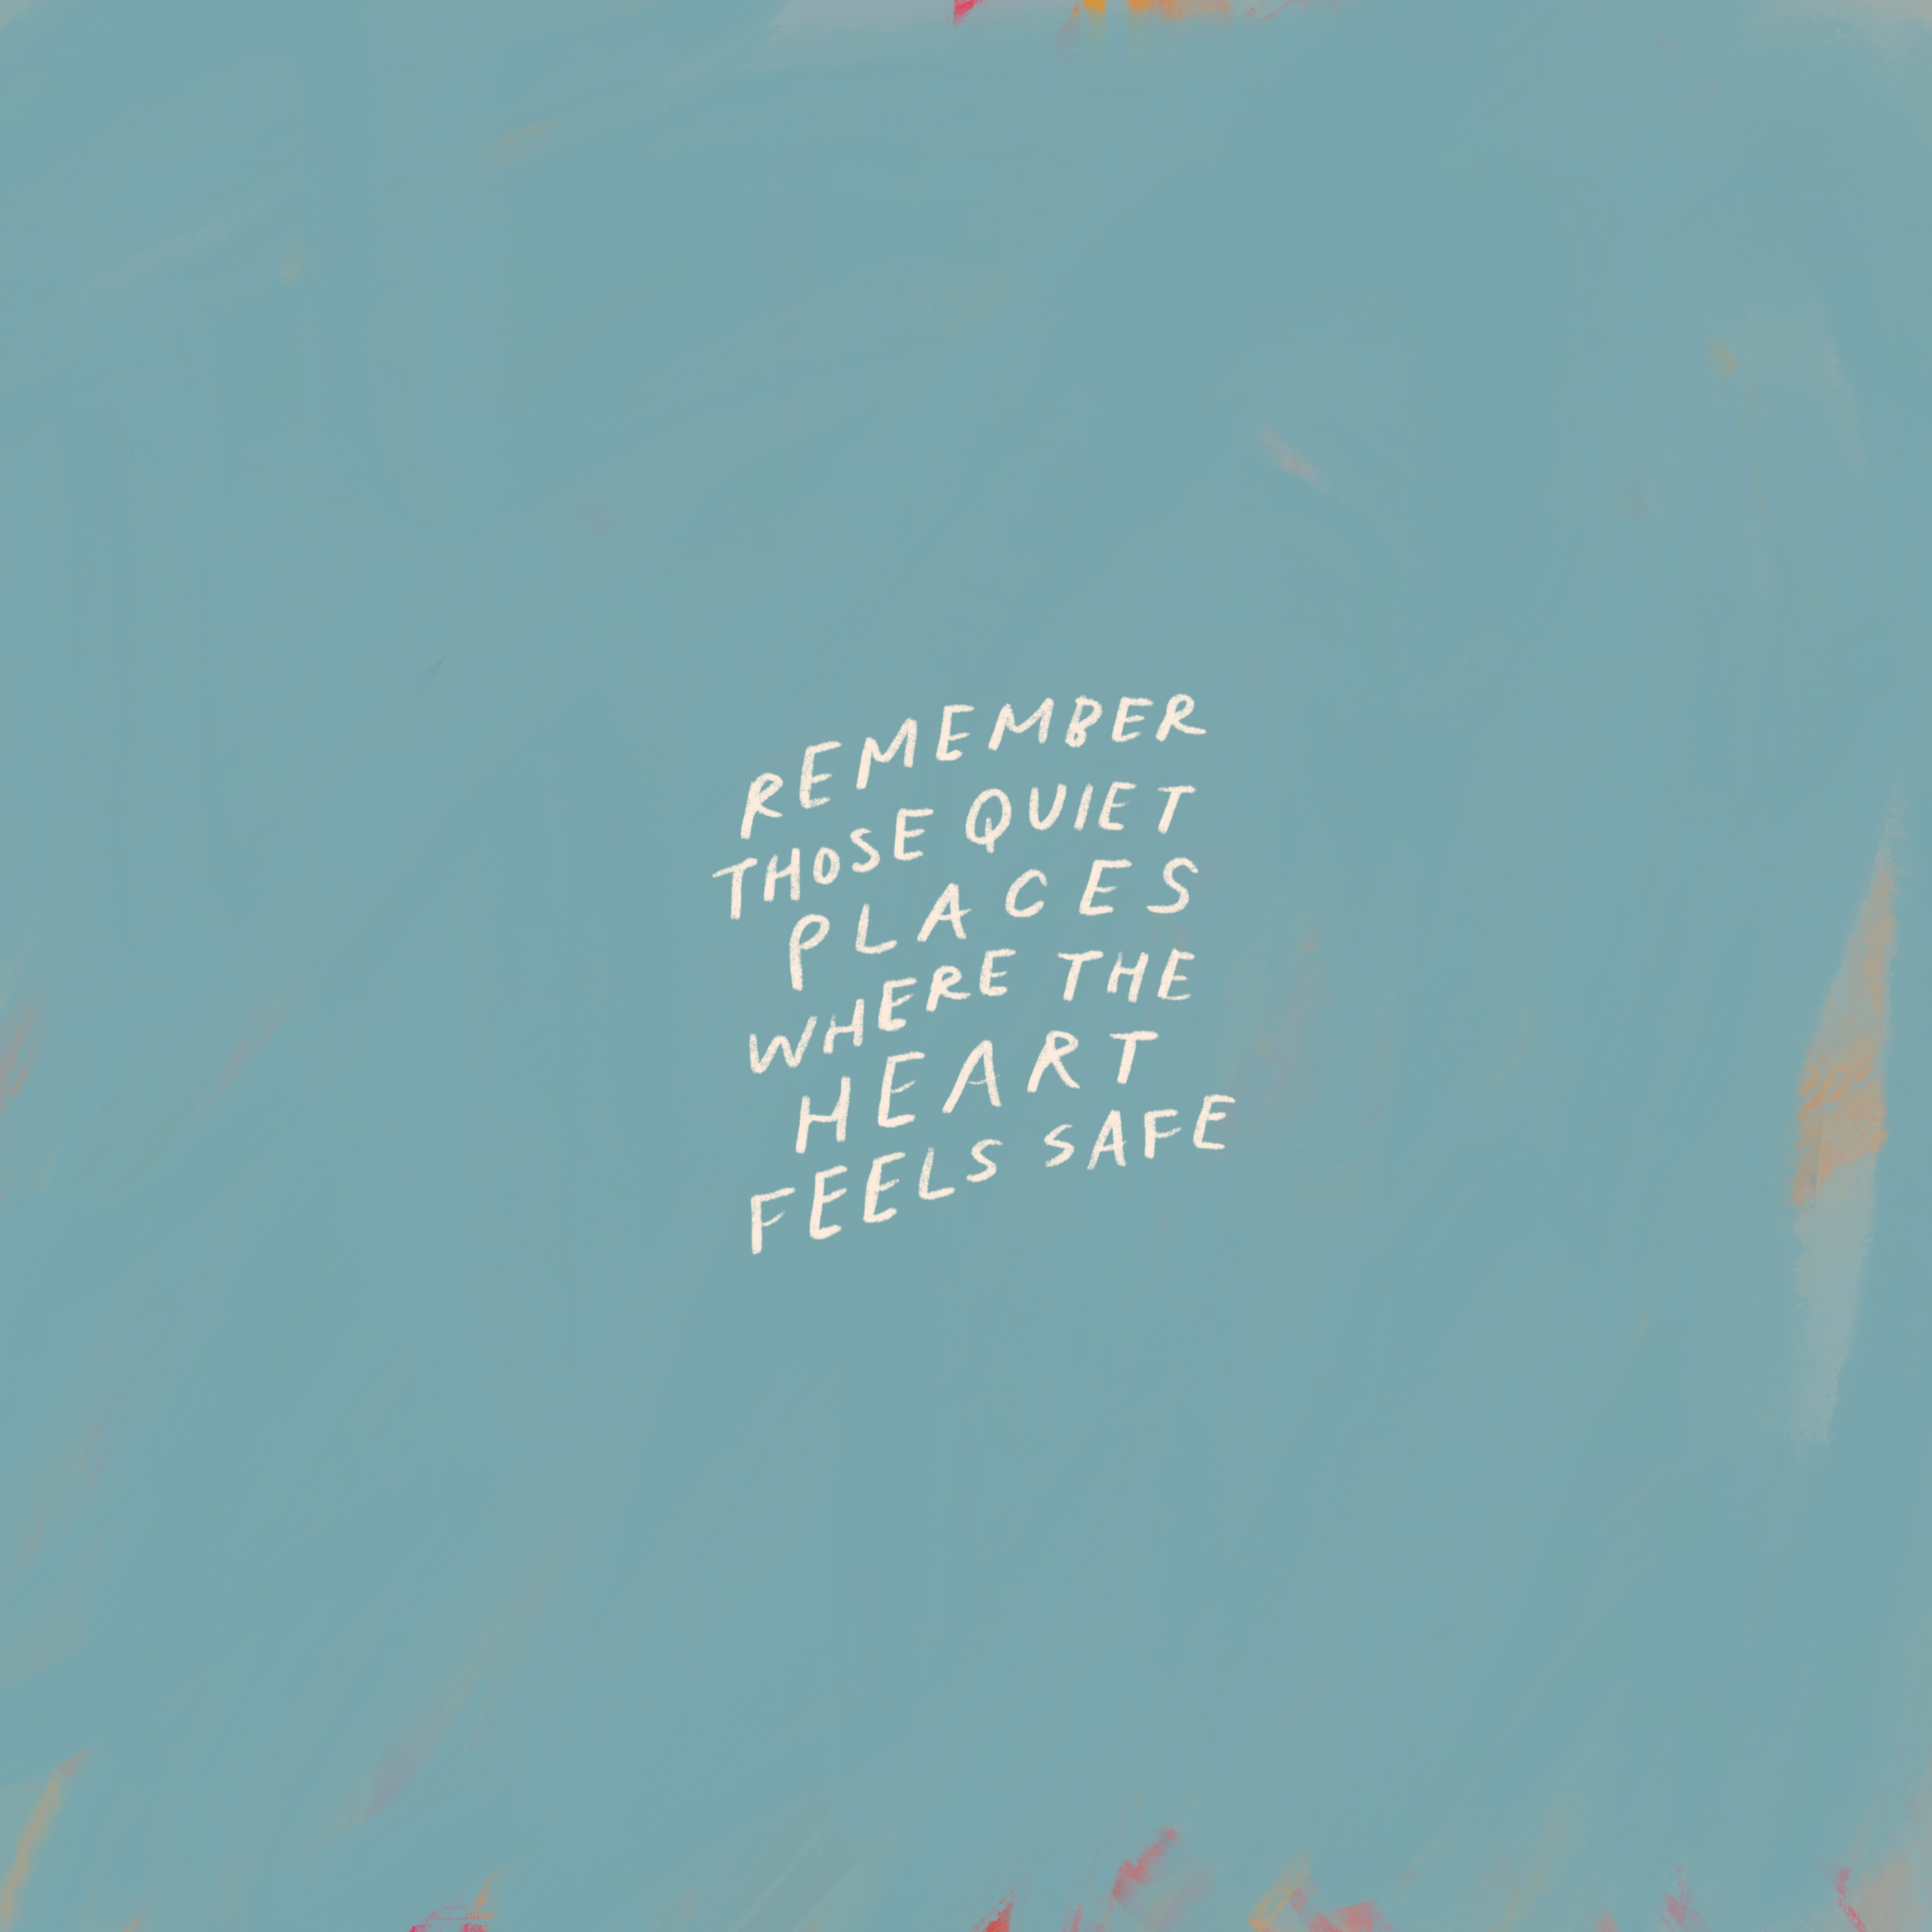 REMEMBER
THOSE QUIET
PLACES
WHERE THE
HEART
FEELS SAFE